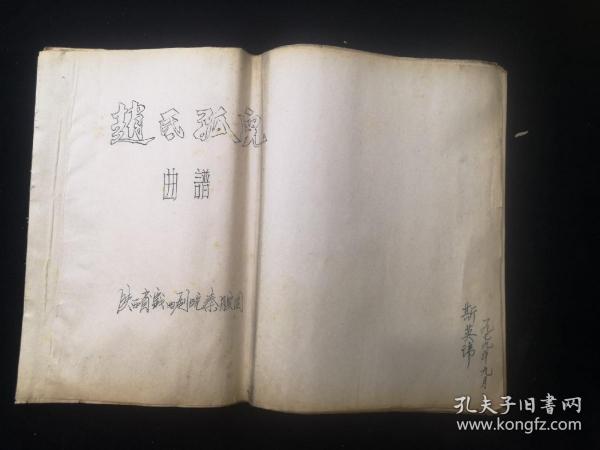 趙氏孤兒
曲譜
陕西省戏曲剧院秦腔团
斯英琦
一九七九年九月
孔夫子旧书网
www.kongfz.com